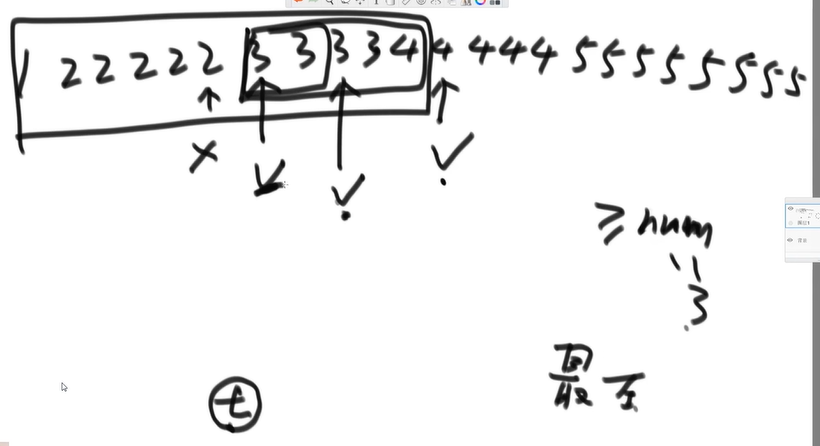 1 2 2 2 2 2 3 3 3 3 4 4 4 4 4 5 5 5 5 5 5 5 5
≥ num
=
3
最左
t